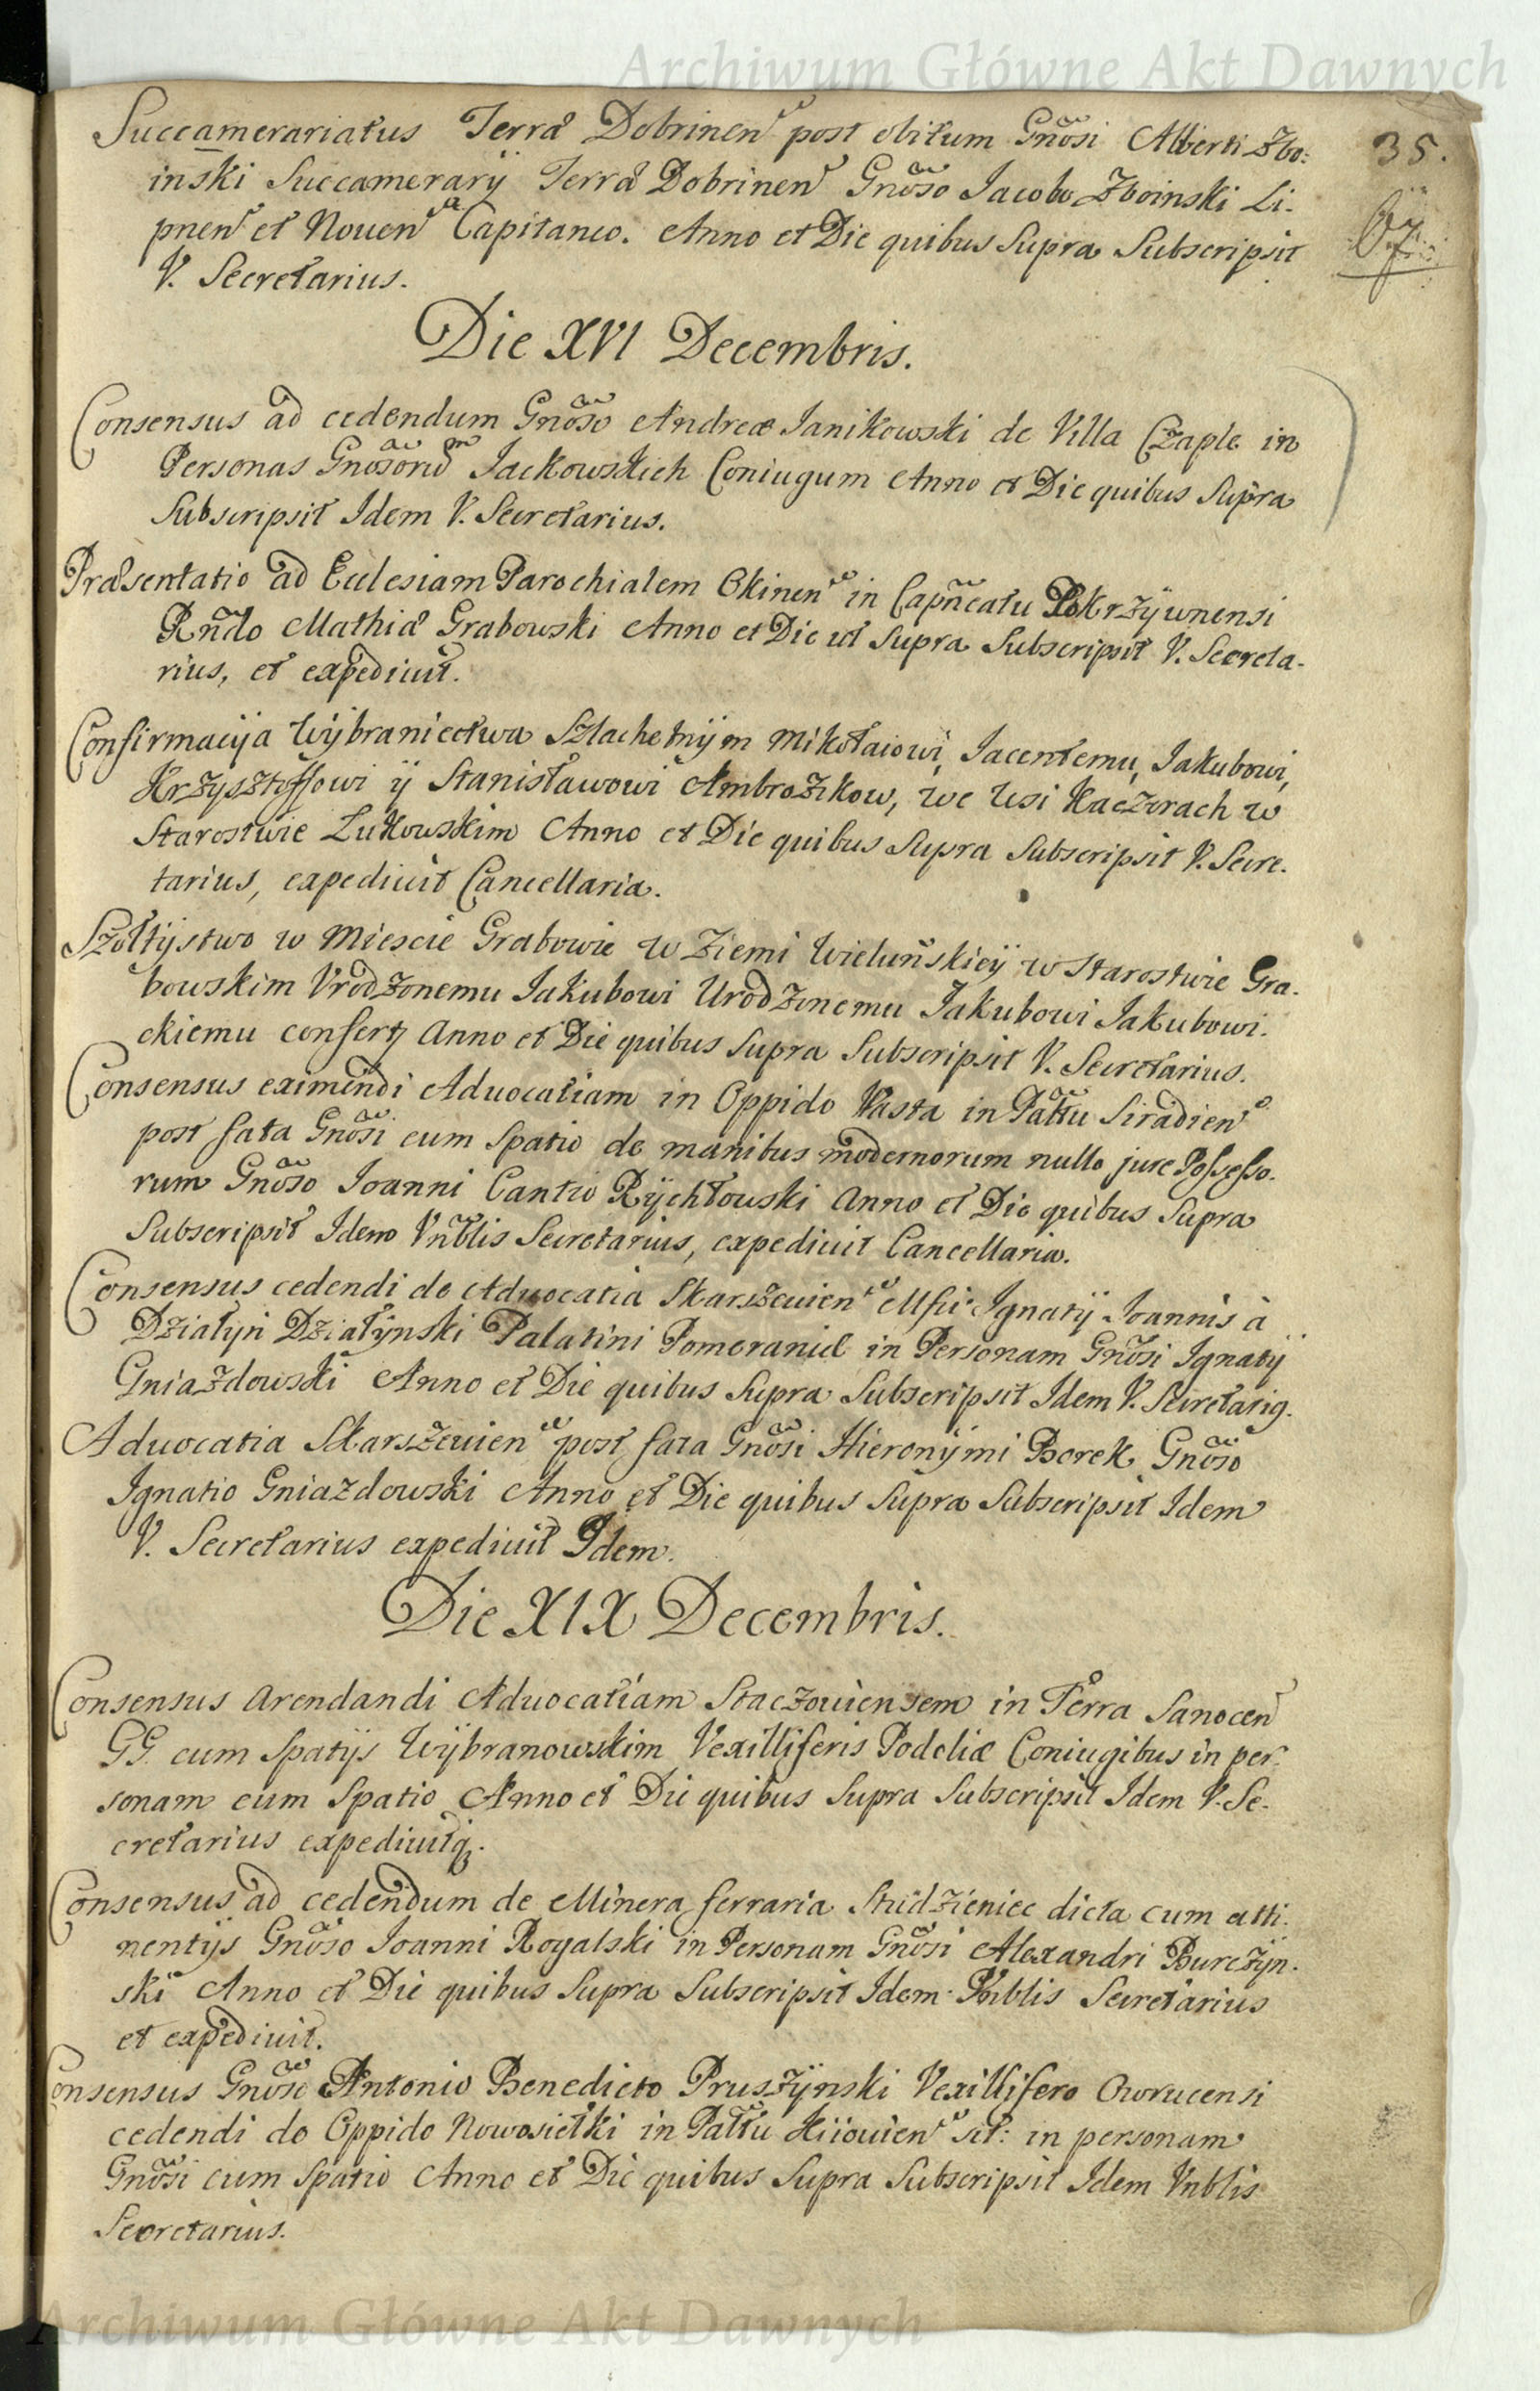 Archiwum Główne Akt Dawnych
35.
67
Succamerariatus Terræ Dobrinen post obitum Gnosi Alberti Zbo:
inski Succamerarÿ Terræ Dobrinen Gnoso Jacobo Zboinski Li-
pnen et Noven Capitaneo. Anno et Die quibus Supra Subscripsit
V. Secretarius.
Die XVI Decembris.
Consensus ad cedendum Gnoso Andreæ Janikowski de Villa Czaple in
Personas Gnosorum Jackowskich Coniugum Anno et Die quibus Supra
Subscripsit Idem V. Secretarius.
Præsentatio ad Ecclesiam Parochialem Okinen in Capneatu Pokrzÿwnensi
Rndo Mathiæ Grabowski Anno et Die ut Supra Subscripsit V. Secreta-
rius, et expedivit.
Confirmacÿa Wÿbraniectwa Szlachetnÿm Mikołaiowi, Jacentemu, Jakubowi,
Krzysztoffowi ÿ Stanisławowi Ambrozikow, we Wsi Kaczorach w
Starostwie Łukowskim Anno et Die quibus Supra Subscripsit V. Secre-
tarius, expedivit Cancellaria.
Szołtÿstwo w Miescie Grabowie w Ziemi Wieluńskieÿ w Starostwie Gra-
bowskim Vrodzonemu Jakubowi Urodzonemu Jakubowi Jakubowi-
ckiemu confert Anno et Die quibus Supra Subscripsit V. Secretarius.
Consensus eximendi Advocatiam in Oppido Wasta in Pallu Siradien
post fata Gnosi cum Spatio de manibus modernorum nullo jure Possesso-
rum Gnoso Joanni Cantio Rÿchłowski Anno et Die quibus Supra
Subscripsit Idem Vnblis Secretarius, expedivit Cancellaria.
Consensus cedendi de Advocatia Skarszewien Mfici Ignatÿ Joannis à
Działÿn Działÿnski Palatini Pomeraniæ in Personam Gnosi Ignatÿ
Gniazdowski Anno et Die quibus Supra Subscripsit Idem V. Secretarig.
Advocatia Skarszewien post fata Gnosi Hieronÿmi Borek Gnoso
Ignatio Gniazdowski Anno et Die quibus Supra Subscripsit Idem
V. Secretarius expedivit Idem.
Die XIX Decembris.
Consensus Arendandi Advocatiam Staczowiensem in Terra Sanocen
GG. cum Spatÿs Wÿbranowskim Vexilliferis Podoliæ Coniugibus in per-
sonam cum Spatio Anno et Die quibus Supra Subscripsit Idem V. Se-
cretarius expedivitq.
Consensus ad cedendum de Minera ferraria Studzieniec dicta cum atti-
nentÿs Gnoso Joanni Rogalski in Personam Gnosi Alexandri Burczÿn-
ski Anno et Die quibus Supra Subscripsit Idem Vnblis Secretarius
et expedivit.
Consensus Gnoso Antonio Benedicto Pruszÿnski Vexillifero Owrucensi
cedendi de Oppido Nowosiełki in Pallu Kiiowien sit: in personam
Gnosi cum Spatio Anno et Die quibus Supra Subscripsit Idem Vnblis
Secretarius.
Archiwum Główne Akt Dawnych